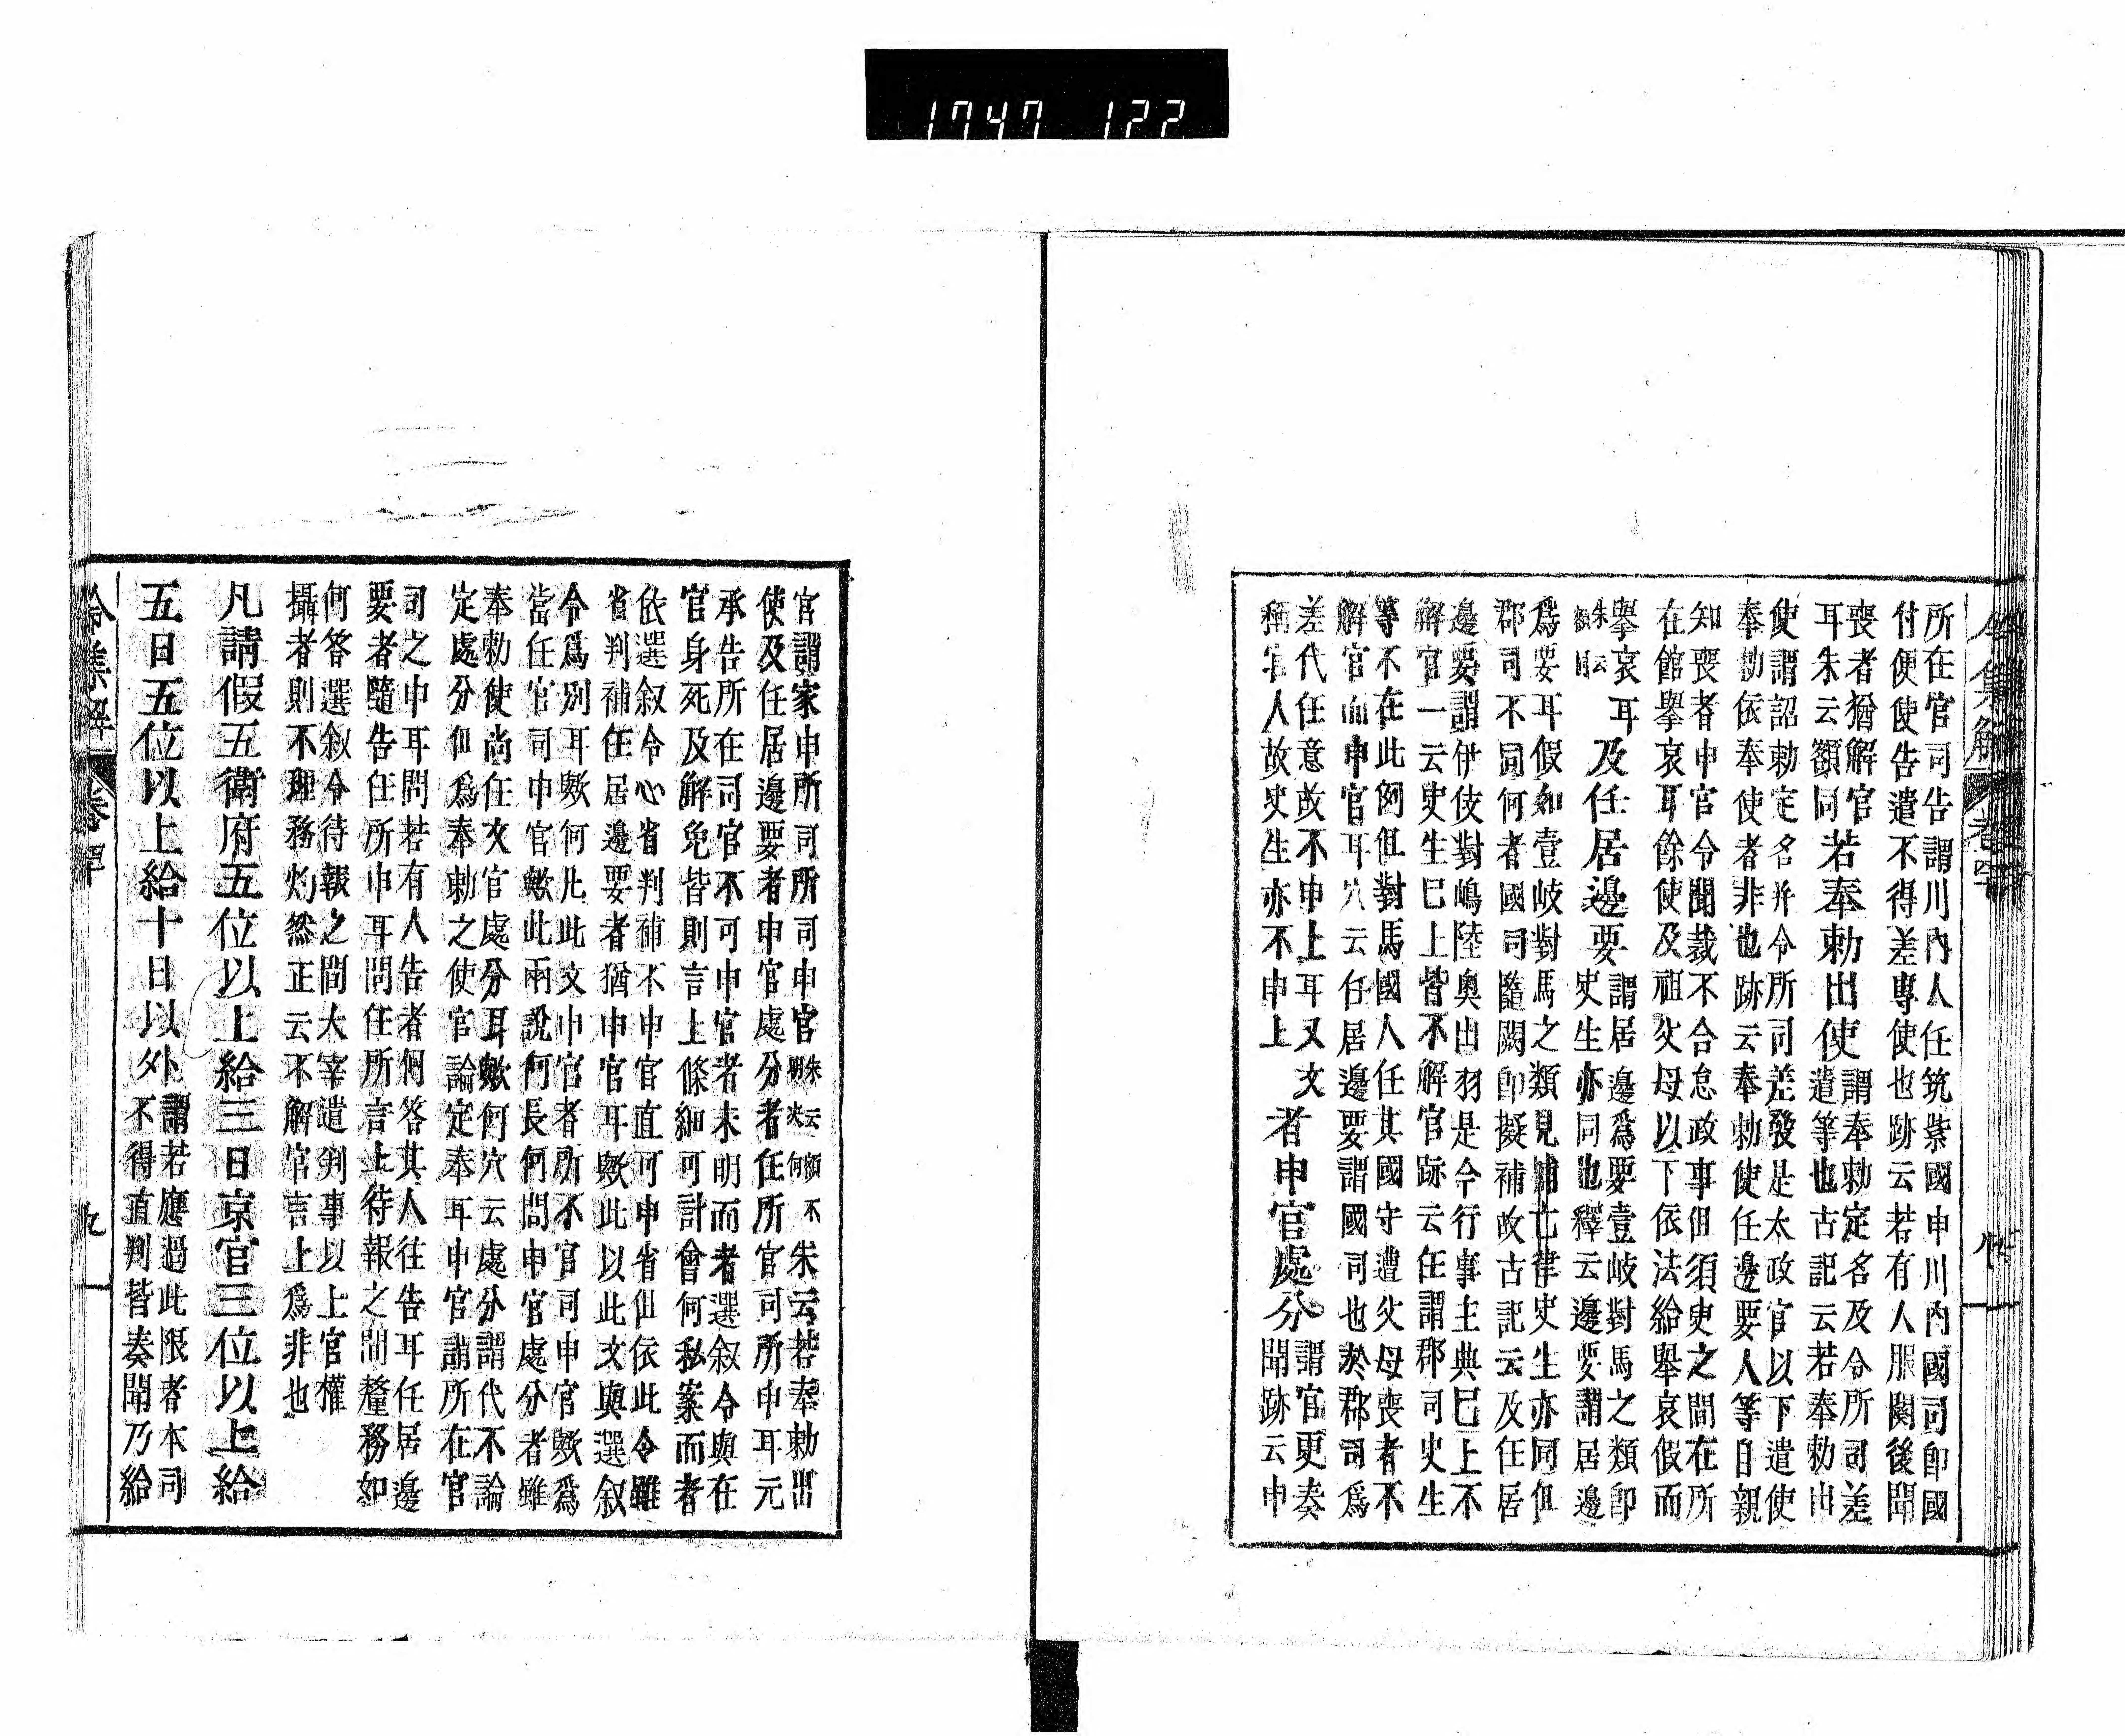 1747 122
所在官司告謂川內人任筑紫國申川內國司卽國
付便使告遣不得差專使也跡云若有人服闋後聞
喪者猶解官
耳朱云額同
若奉勅出使
謂奉勅定名及令所司差
遣等也古記云若奉勅出
使謂詔勅定名并令所司差發是太政官以下遣使
奉勅依奉使者非也跡云奉勅使任邊要人等自親
知喪者申官令聞裁不合怠政事但須臾之間在所
在館擧哀耳餘使及祖父母以下依法給擧哀假而
擧哀耳
朱云
額同
及任居邊要
謂居邊爲要壹岐對馬之類卽
史生亦同也釋云邊要謂居邊
爲要耳假如壹岐對馬之類見補亡律史生亦同但
郡司不同何者國司隨闕卽擬補故古記云及任居
邊要謂伊伎對嶋陸奧出羽是今行事主典已上不
解官一云史生已上皆不解官跡云任謂郡司史生
等不在此例但對馬國人任其國守遭父母喪者不
解官而申官耳穴云任居邊要謂國司也於郡司爲
差代任意故不申上耳又文
稱官人故史生亦不申上
者申官處分
謂官更奏
聞跡云申
官謂家申所司所司申官
朱云額不
明欠何
不朱云若奉勅出
使及任居邊要者申官處分者任所官司所申耳元
承告所在司官不可申官者未明而者選叙令與在
官身死及解免皆則言上條細可計會何私案而者
依選叙令心省判補不申官直可申省但依此令雖
省判補任居邊要者猶申官耳歟此以此文與選叙
令爲別耳歟何凡此文申官者所不官司申官歟爲
當任官司申官歟此兩說何長何問申官處分者雖
奉勅使尚任次官處分耳歟何穴云處分謂代不論
定處分但爲奉勅之使官論定奉耳申官請所在官
司之申耳問若有人告者何答其人往告耳任居邊
要者隨告任所申耳問任所言上待報之間釐務如
何答選叙令待報之間大宰遣判事以上官權
攝者則不理務灼然正云不解官言上爲非也
凡請假五衛府五位以上給三日京官三位以上給
五日五位以上給十日以外
謂若應過此限者本司
不得直判皆奏聞乃給
令集解 卷四十 九